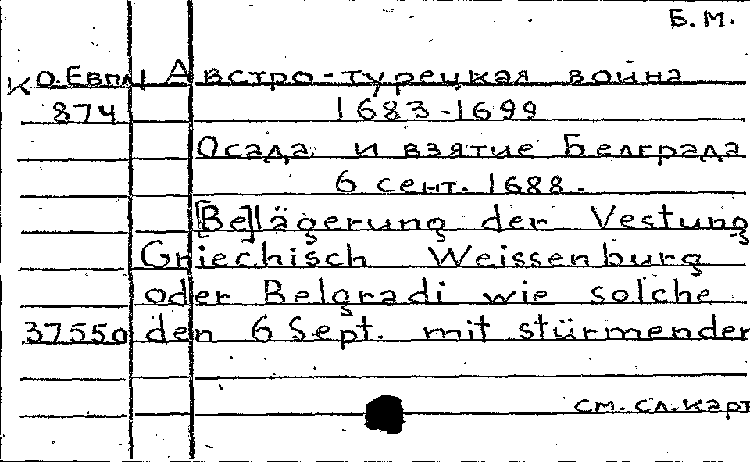 Б.М.
К О.Евпл Австро-турецкая война
874 1683-1699
Осада и взятие Белграда
6 сент. 1688.
[Be]lägerung der Vestung
Griechisch Weissenburg
oder Belgradi wie solche
37550 den 6 Sept. mit stürmender
см. сл. карт